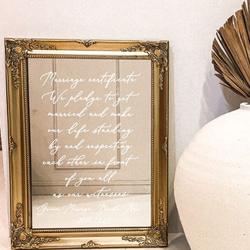 Marriage certificate
We pledge to get
married and make
our life standing
by and respecting
each other in front
of you all
as our witnesses